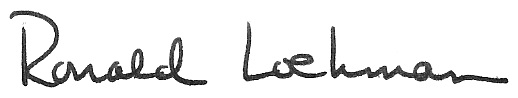 Ronald Loehman